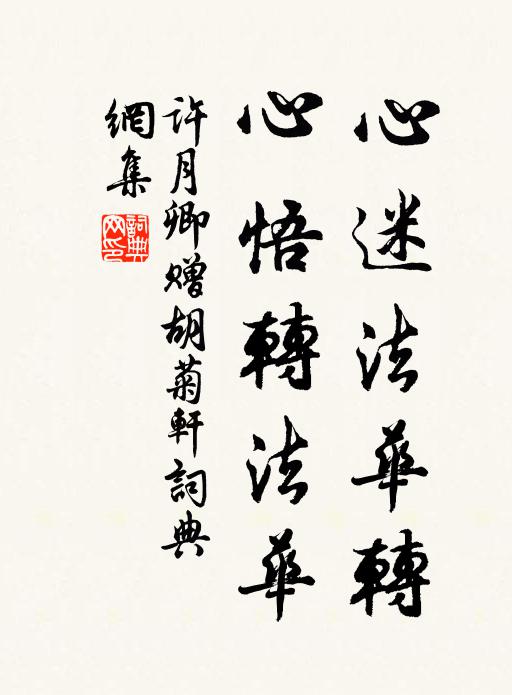 心迷法華轉
心悟轉法華
許月卿赠胡菊軒詞典
網集
詞典網印